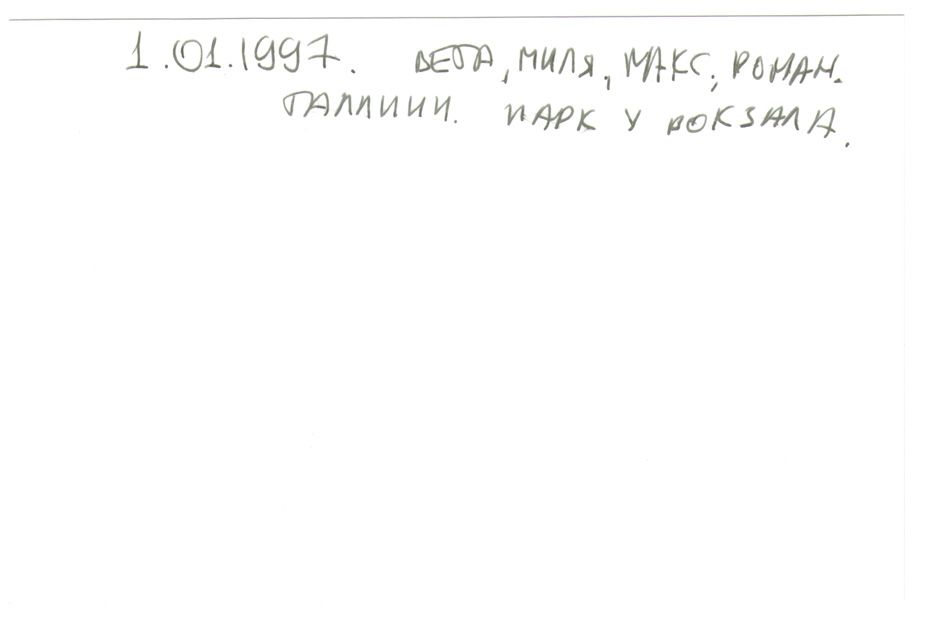 1.01.1997. ВЕТА, МИЛЯ, МАКС, РОМАН.
ТАЛЛИНН. ПАРК У ВОКЗАЛА.